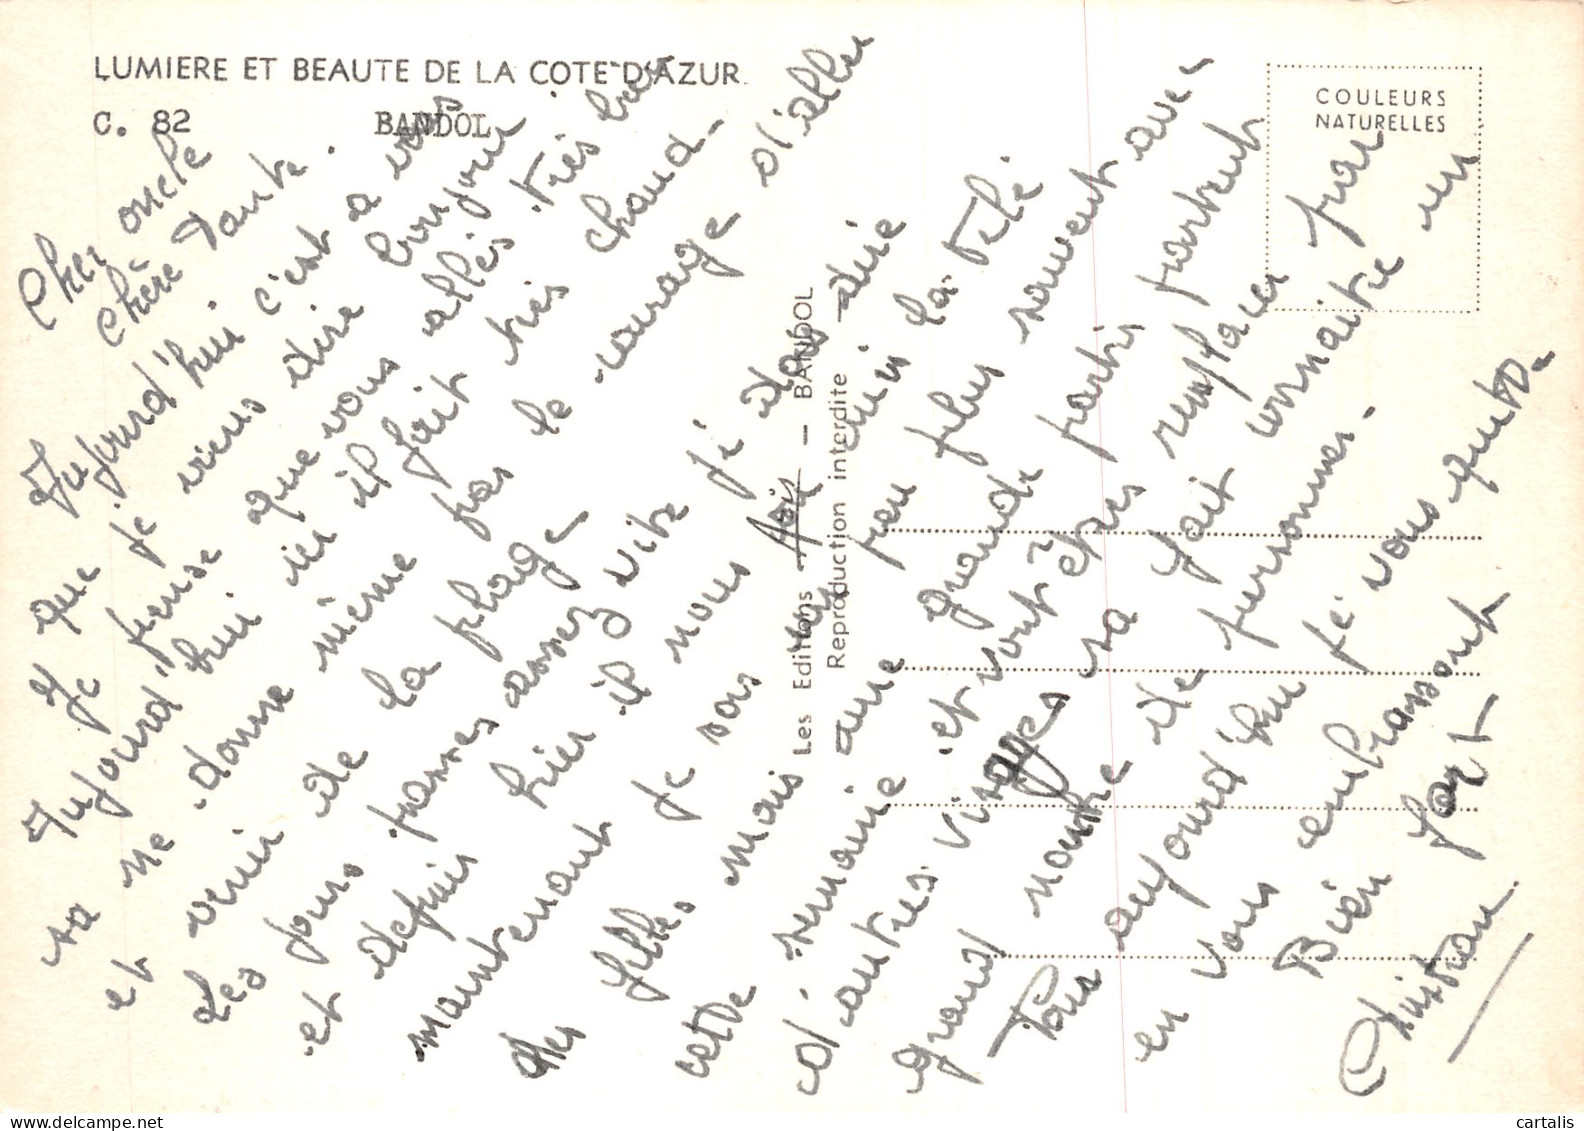 LUMIERE ET BEAUTE DE LA COTE D'AZUR
C. 82 BANDOL
COULEURS
NATURELLES
Les Editions Aris — BANDOL
Reproduction interdite
Cher oncle
chère Tante.
Aujourd'hui c'est a vous
que je viens dire bonjour
Je pense que vous allés très bien
Aujourd'hui ici il fait très chaud
sa ne donne même pas le courage d'aller
et venir de la plage
Les jours passes assez vite
et depuis hier il nous
maintenant je
des filles mais un peu plus souvent avec
cette semaine une grande partis partent
d'autres visages et vont êtres remplacer par
grand nombre de sa fait connaitre un
personnes.
Pour aujourd'hui je vous quitte
en vous embrassant
Bien fort
Christian
cartalis